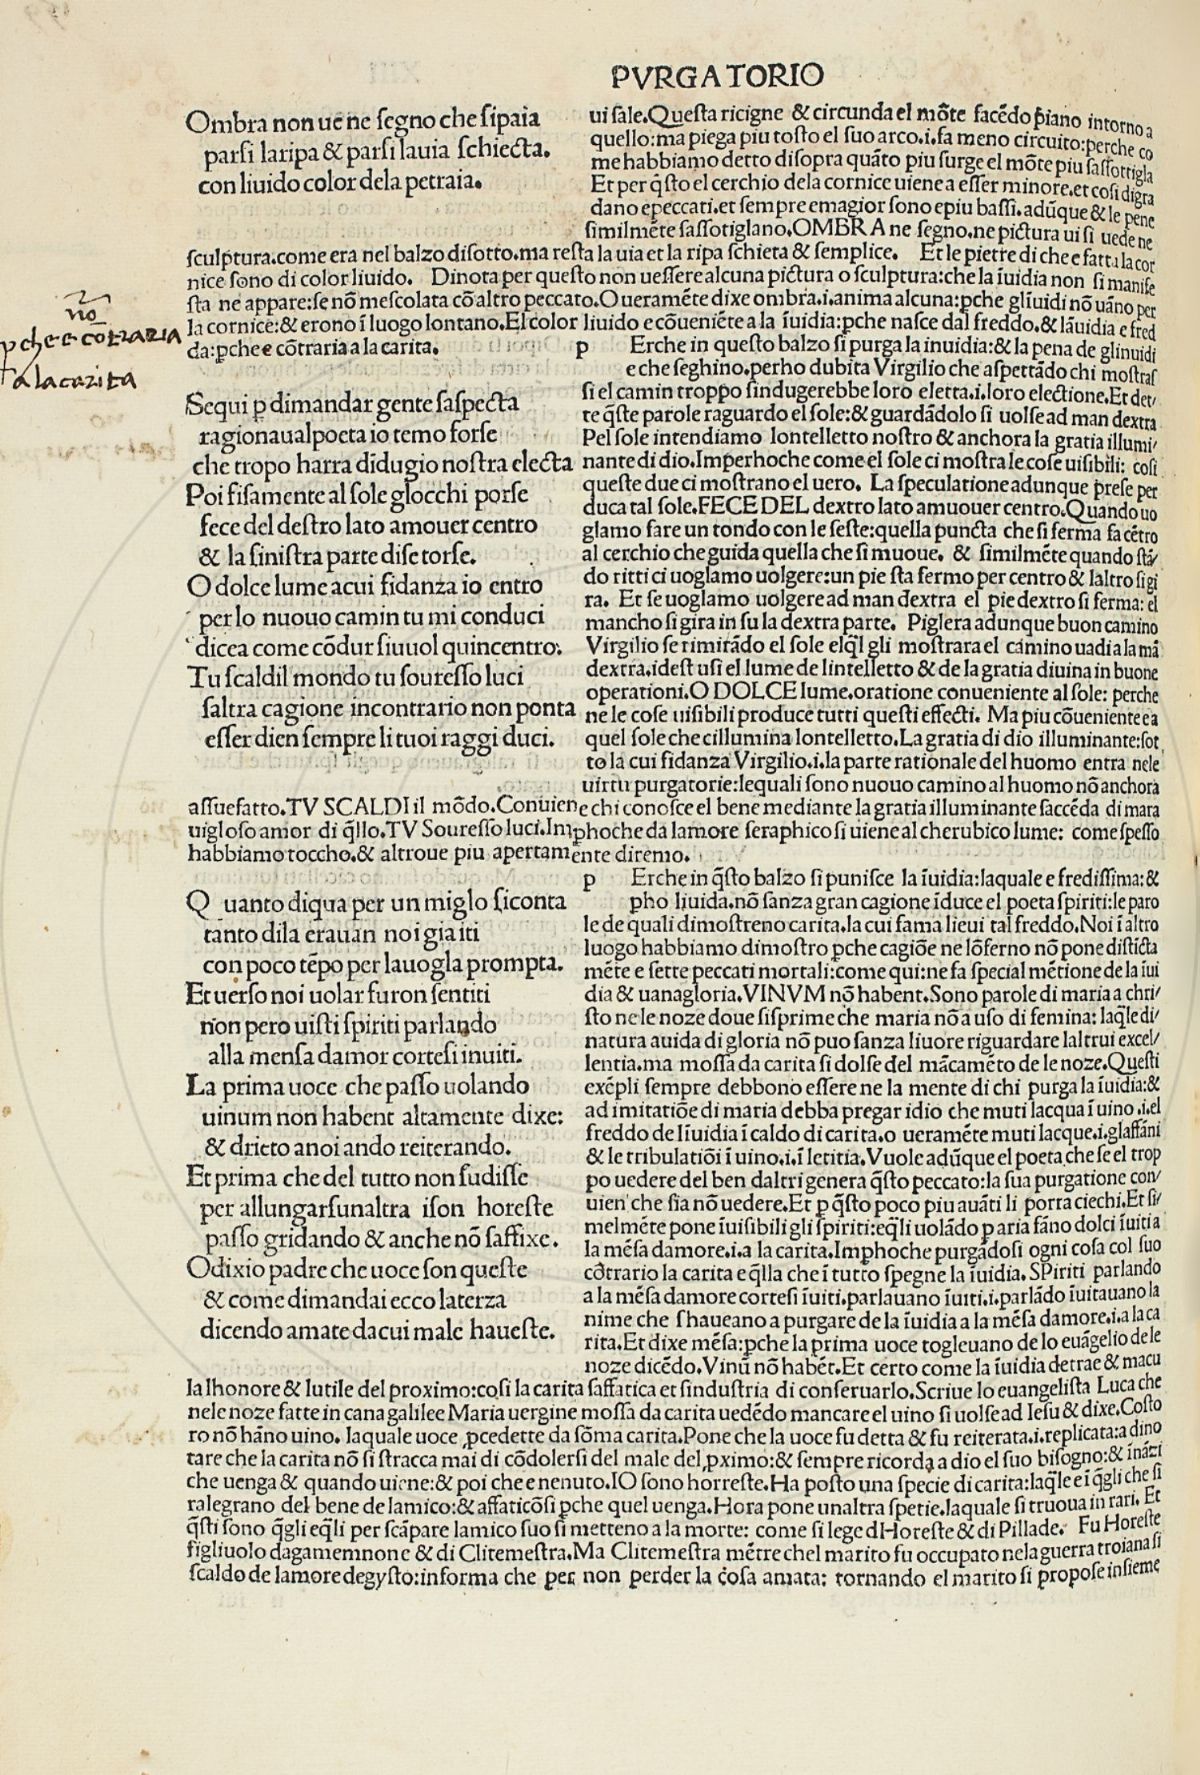 PVRGATORIO
Ombra non ue ne segno che sipaia
parsi laripa & parsi lauia schiecta.
con liuido color dela petraia.
ui sale.Questa ricigne & circunda el mōte facēdo piano intorno a
quello:ma piega piu tosto el suo arco.i.fa meno circuito:perche co
me habbiamo detto disopra quāto piu surge el mōte piu sassottigla
Et per q̄sto el cerchio dela cornice uiene a esser minore.et cosi digra
dano epeccati.et sempre emagior sono epiu bassi.adūque & le pene
similmēte sassotiglano.OMBRA ne segno.ne pictura ui si uede ne
sculptura.come era nel balzo disotto.ma resta la uia et la ripa schieta & semplice. Et le pietre di che e fatta la cor
nice sono di color liuido. Dinota per questo non uessere alcuna pictura o sculptura:che la īuidia non si manife
sta ne appare:se nō mescolata cō altro peccato.O ueramēte dixe ombra.i.anima alcuna:pche glīuidi nō uāno per
la cornice:& erono ī luogo lontano.El color liuido e cōueniēte a la īuidia:pche nasce dal freddo.& lāuidia e fred
da:pche e cōtraria a la carita.
nō
pche e cōtraria
a la carita
Sequi p dimandar gente saspecta
ragionaualpoeta io temo forse
che tropo harra didugio nostra electa
Poi fisamente al sole glocchi porse
fece del destro lato amouer centro
& la sinistra parte dise torse.
O dolce lume acui fidanza io entro
per lo nuouo camin tu mi conduci
dicea come cōdur siuuol quincentro.
Tu scaldil mondo tu souresso luci
saltra cagione incontrario non ponta
esser dien sempre li tuoi raggi duci.
p Erche in questo balzo si purga la inuidia:& la pena de glinuidi
e che seghino.perho dubita Virgilio che aspettādo chi mostras
si el camin troppo sindugerebbe loro eletta.i.loro electione.Et det/
te q̄ste parole raguardo el sole:& guardādolo si uolse ad man dextra
Pel sole intendiamo lontelletto nostro & anchora la gratia illumi/
nante di dio.Imperhoche come el sole ci mostra le cose uisibili: cosi
queste due ci mostrano el uero. La speculatione adunque prese per
duca tal sole.FECE DEL dextro lato amuouer centro.Quando uo
glamo fare un tondo con le seste:quella puncta che si ferma fa cētro
al cerchio che guida quella che si muoue. & similmēte quando stā/
do ritti ci uoglamo uolgere:un pie sta fermo per centro & laltro si gi
ra. Et se uoglamo uolgere ad man dextra el pie dextro si ferma: el
mancho si gira in su la dextra parte. Piglera adunque buon camino
Virgilio se rimirādo el sole elq̄l gli mostrara el camino uadi a la mā
dextra.idest usi el lume de lintelletto & de la gratia diuina in buone
operationi.O DOLCE lume.oratione conueniente al sole: perche
ne le cose uisibili produce tutti questi effecti. Ma piu cōueniente e a
quel sole che cillumina lontelletto.La gratia di dio illuminante:sot
to la cui fidanza Virgilio.i.la parte rationale del huomo entra nele
uirtu purgatorie:lequali sono nuouo camino al huomo nō anchora
assuefatto.TV SCALDI il mōdo.Conuiene chi conosce el bene mediante la gratia illuminante saccēda di mara
uigloso amor di q̄llo.TV Souresso luci.Imphoche da lamore seraphico si uiene al cherubico lume: come spesso
habbiamo toccho.& altroue piu apertamente diremo.
Q uanto diqua per un miglo siconta
tanto dila erauan noi gia iti
con poco tēpo per lauogla prompta.
Et uerso noi uolar furon sentiti
non pero uisti spiriti parlando
alla mensa damor cortesi inuiti.
La prima uoce che passo uolando
uinum non habent altamente dixe:
& drieto anoi ando reiterando.
Et prima che del tutto non sudisse
per allungarsunaltra ison horeste
passo gridando & anche nō saffixe.
Odixio padre che uoce son queste
& come dimandai ecco laterza
dicendo amate dacui male haueste.
p Erche in q̄sto balzo si punisce la īuidia:laquale e fredissima:&
pho liuida.nō sanza gran cagione īduce el poeta spiriti:le paro
le de quali dimostreno carita.la cui fama lieui tal freddo.Noi ī altro
luogo habbiamo dimostro pche cagiōe ne lōferno nō pone distīcta
mēte e sette peccati mortali:come qui:ne fa special mētione de la īui
dia & uanagloria.VINVM nō habent.Sono parole di maria a chri/
sto ne le noze doue sisprime che maria nō a uso di femina: laq̄le di/
natura auida di gloria nō puo sanza liuore riguardare laltrui excel/
lentia.ma mossa da carita si dolse del mācamēto de le noze.Questi
exēpli sempre debbono essere ne la mente di chi purga la īuidia:&
ad imitatiōe di maria debba pregar idio che muti lacqua ī uino .i.el
freddo de līuidia ī caldo di carita.o ueramēte muti lacque.i.glaffāni
& le tribulatiōi ī uino.i.ī letitia.Vuole adūque el poeta che se el trop
po uedere del ben daltri genera q̄sto peccato:la sua purgatione con/
uien che sia nō uedere.Et p q̄sto poco piu auāti li porra ciechi.Et si/
melmēte pone īuisibili gli spiriti:eq̄li uolādo p aria fāno dolci īuitia
la mēsa damore.i.a la carita.Imphoche purgādosi ogni cosa col suo
cōtrario la carita e q̄lla che ī tutto spegne la īuidia. SPiriti parlando
a la mēsa damore cortesi īuiti.parlauano īuiti.i.parlādo īuitauano la
nime che shaueano a purgare de la īuidia a la mēsa damore.i.a la ca
rita.Et dixe mēsa:pche la prima uoce togleuano de lo euāgelio de le
noze dicēdo.Vinū nō habēt.Et certo come la īuidia detrae & macu
la lhonore & lutile del proximo:cosi la carita saffatica et sindustria di conseruarlo.Scriue lo euangelista Luca che
nele noze fatte in cana galilee Maria uergine mossa da carita uedēdo mancare el uino si uolse ad Iesu & dixe.Costo
ro nō hāno uino. laquale uoce pcedette da sōma carita.Pone che la uoce fu detta & fu reiterata.i.replicata:a dino
tare che la carita nō si stracca mai di cōdolersi del male del pximo:& sempre ricorda a dio el suo bisogno:& īnāzi
che uenga & quando uiene:& poi che e nenuto.IO sono horreste.Ha posto una specie di carita:laq̄le e ī q̄gli che si
ralegrano del bene de lamico:& affaticōsi pche quel uenga.Hora pone unaltra spetie.laquale si truoua in rari. Et
q̄sti sono q̄gli eq̄li per scāpare lamico suo si metteno a la morte: come si lege dHoreste & di Pillade. Fu Horeste
figliuolo dagamemnone & di Clitemestra.Ma Clitemestra mētre chel marito fu occupato nela guerra troiana si
scaldo de lamore degysto:informa che per non perder la cosa amata: tornando el marito si propose insieme